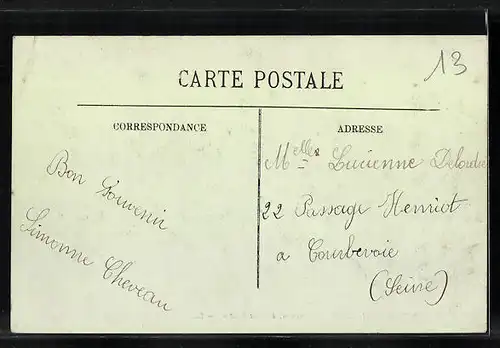 13
CARTE POSTALE
CORRESPONDANCE
ADRESSE
Bon Souvenir
Simonne Cheveau
Melles Lucienne
22 Passage Henriot
à Courbevoie
(Seine)